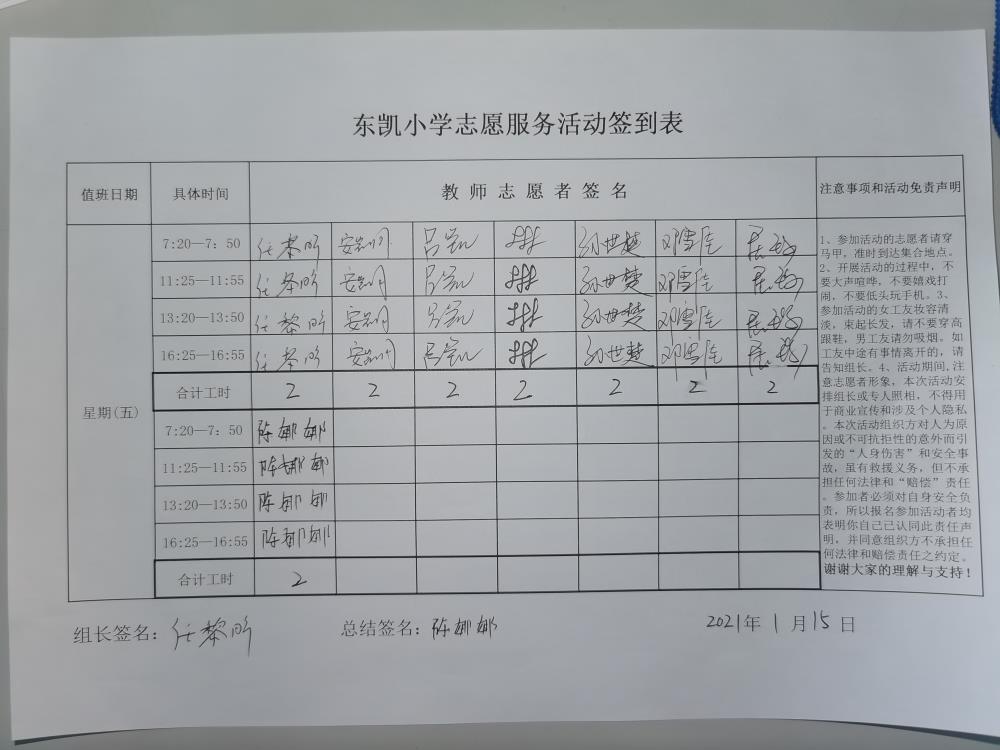 东凯小学志愿服务活动签到表
值班日期 具体时间 教师志愿者签名 注意事项和活动免责声明
7:20—7：50 任黎昕 孙世楚 邓雪佳
11:25—11:55 任黎昕 孙世楚 邓雪佳
13:20—13:50 任黎昕 孙世楚 邓雪佳
16:25—16:55 任黎昕 孙世楚 邓雪佳
合计工时 2 2 2 2 2 2 2
星期(五)
7:20—7：50 陈娜娜
11:25—11:55 陈娜娜
13:20—13:50 陈娜娜
16:25—16:55 陈娜娜
合计工时 2
1、参加活动的志愿者请穿
马甲，准时到达集合地点。
2、开展活动的过程中，不
要大声喧哗，不要嬉戏打
闹，不要低头玩手机。3、
参加活动的女工友妆容清
淡，束起长发，请不要穿高
跟鞋，男工友请勿吸烟。如
工友中途有事情离开的，请
告知组长。4、活动期间,注
意志愿者形象，本次活动安
排组长或专人照相，不得用
于商业宣传和涉及个人隐私
。本次活动组织方对人为原
因或不可抗拒性的意外而引
发的“人身伤害”和安全事
故，虽有救援义务，但不承
担任何法律和“赔偿”责任
。参加者必须对自身安全负
责，所以报名参加活动者均
表明你自己已认同此责任声
明，并同意组织方不承担任
何法律和赔偿责任之约定。
谢谢大家的理解与支持！
组长签名：任黎昕 总结签名：陈娜娜 2021年 1 月 15 日